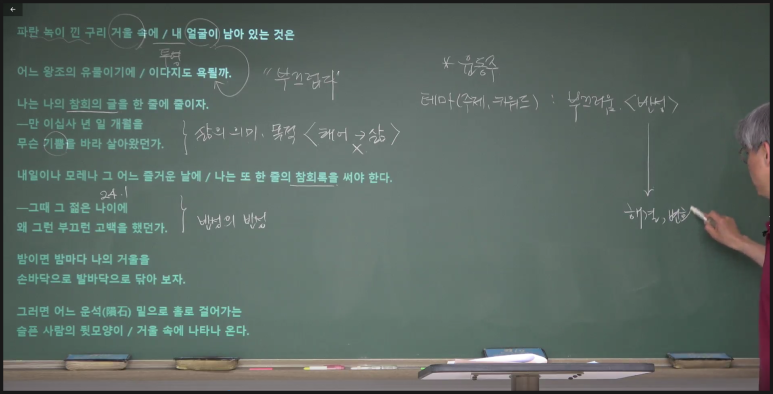 파란 녹이 낀 구리 거울 속에 / 내 얼굴이 남아 있는 것은
투영
어느 왕조의 유물이기에 / 이다지도 욕될까.
"부끄럽다"
나는 나의 참회의 글을 한 줄에 줄이자.
—만 이십사 년 일 개월을
무슨 기쁨을 바라 살아왔던가.
삶의 의미, 목적 <해어 → 삶>
x
내일이나 모레나 그 어느 즐거운 날에 / 나는 또 한 줄의 참회록을 써야 한다.
24.1
—그때 그 젊은 나이에
왜 그런 부끄런 고백을 했던가.
반성의 반성
밤이면 밤마다 나의 거울을
손바닥으로 발바닥으로 닦아 보자.
그러면 어느 운석(隕石) 밑으로 홀로 걸어가는
슬픈 사람의 뒷모양이 / 거울 속에 나타나 온다.
* 윤동주
테마(주제, 키워드) : 부끄러움, <반성>
해결, 변화